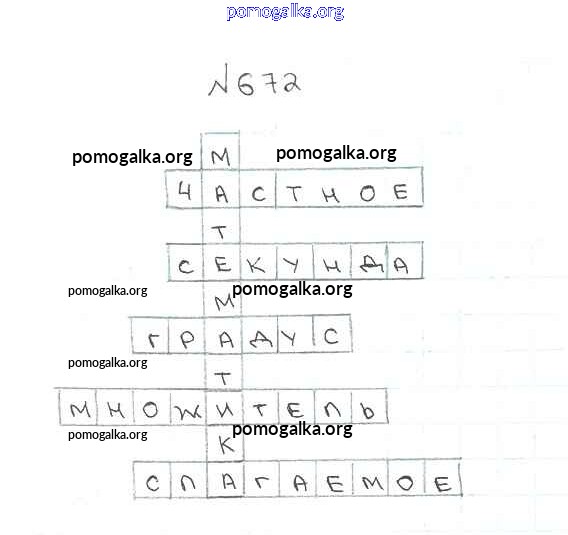 pomogalka.org
№672
М
pomogalka.org pomogalka.org
ЧАСТНОЕ
Т
СЕКУНДА
pomogalka.org М pomogalka.org
ГРАДУС
pomogalka.org
Т
МНОЖИТЕЛЬ
pomogalka.org К pomogalka.org
СЛАГАЕМОЕ